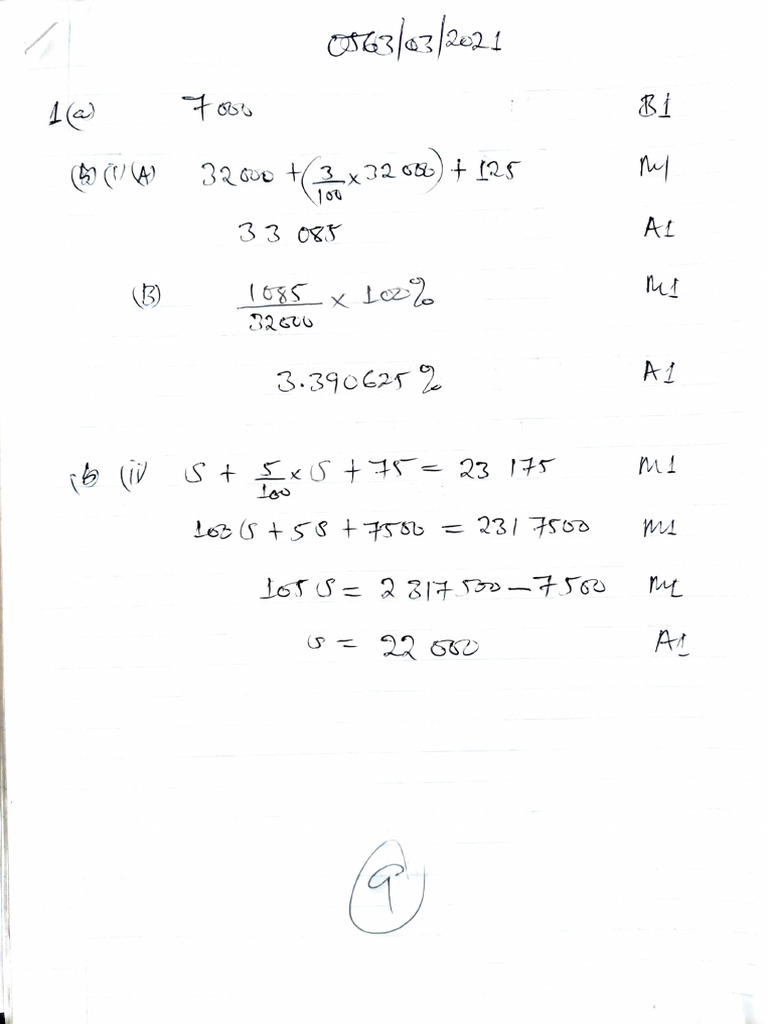 0563/03/2021
1(a) 7000 B1
(b) (i) (A) 32000 + (3/100 × 32000) + 125 M1
33 085 A1
(B) 1085/32000 × 100% M1
3.390625% A1
(b (ii) S + 5/100 × S + 75 = 23 175 M1
100S + 5S + 7500 = 2317500 M1
105S = 2317500 – 7500 M1
S = 22 000 A1
9